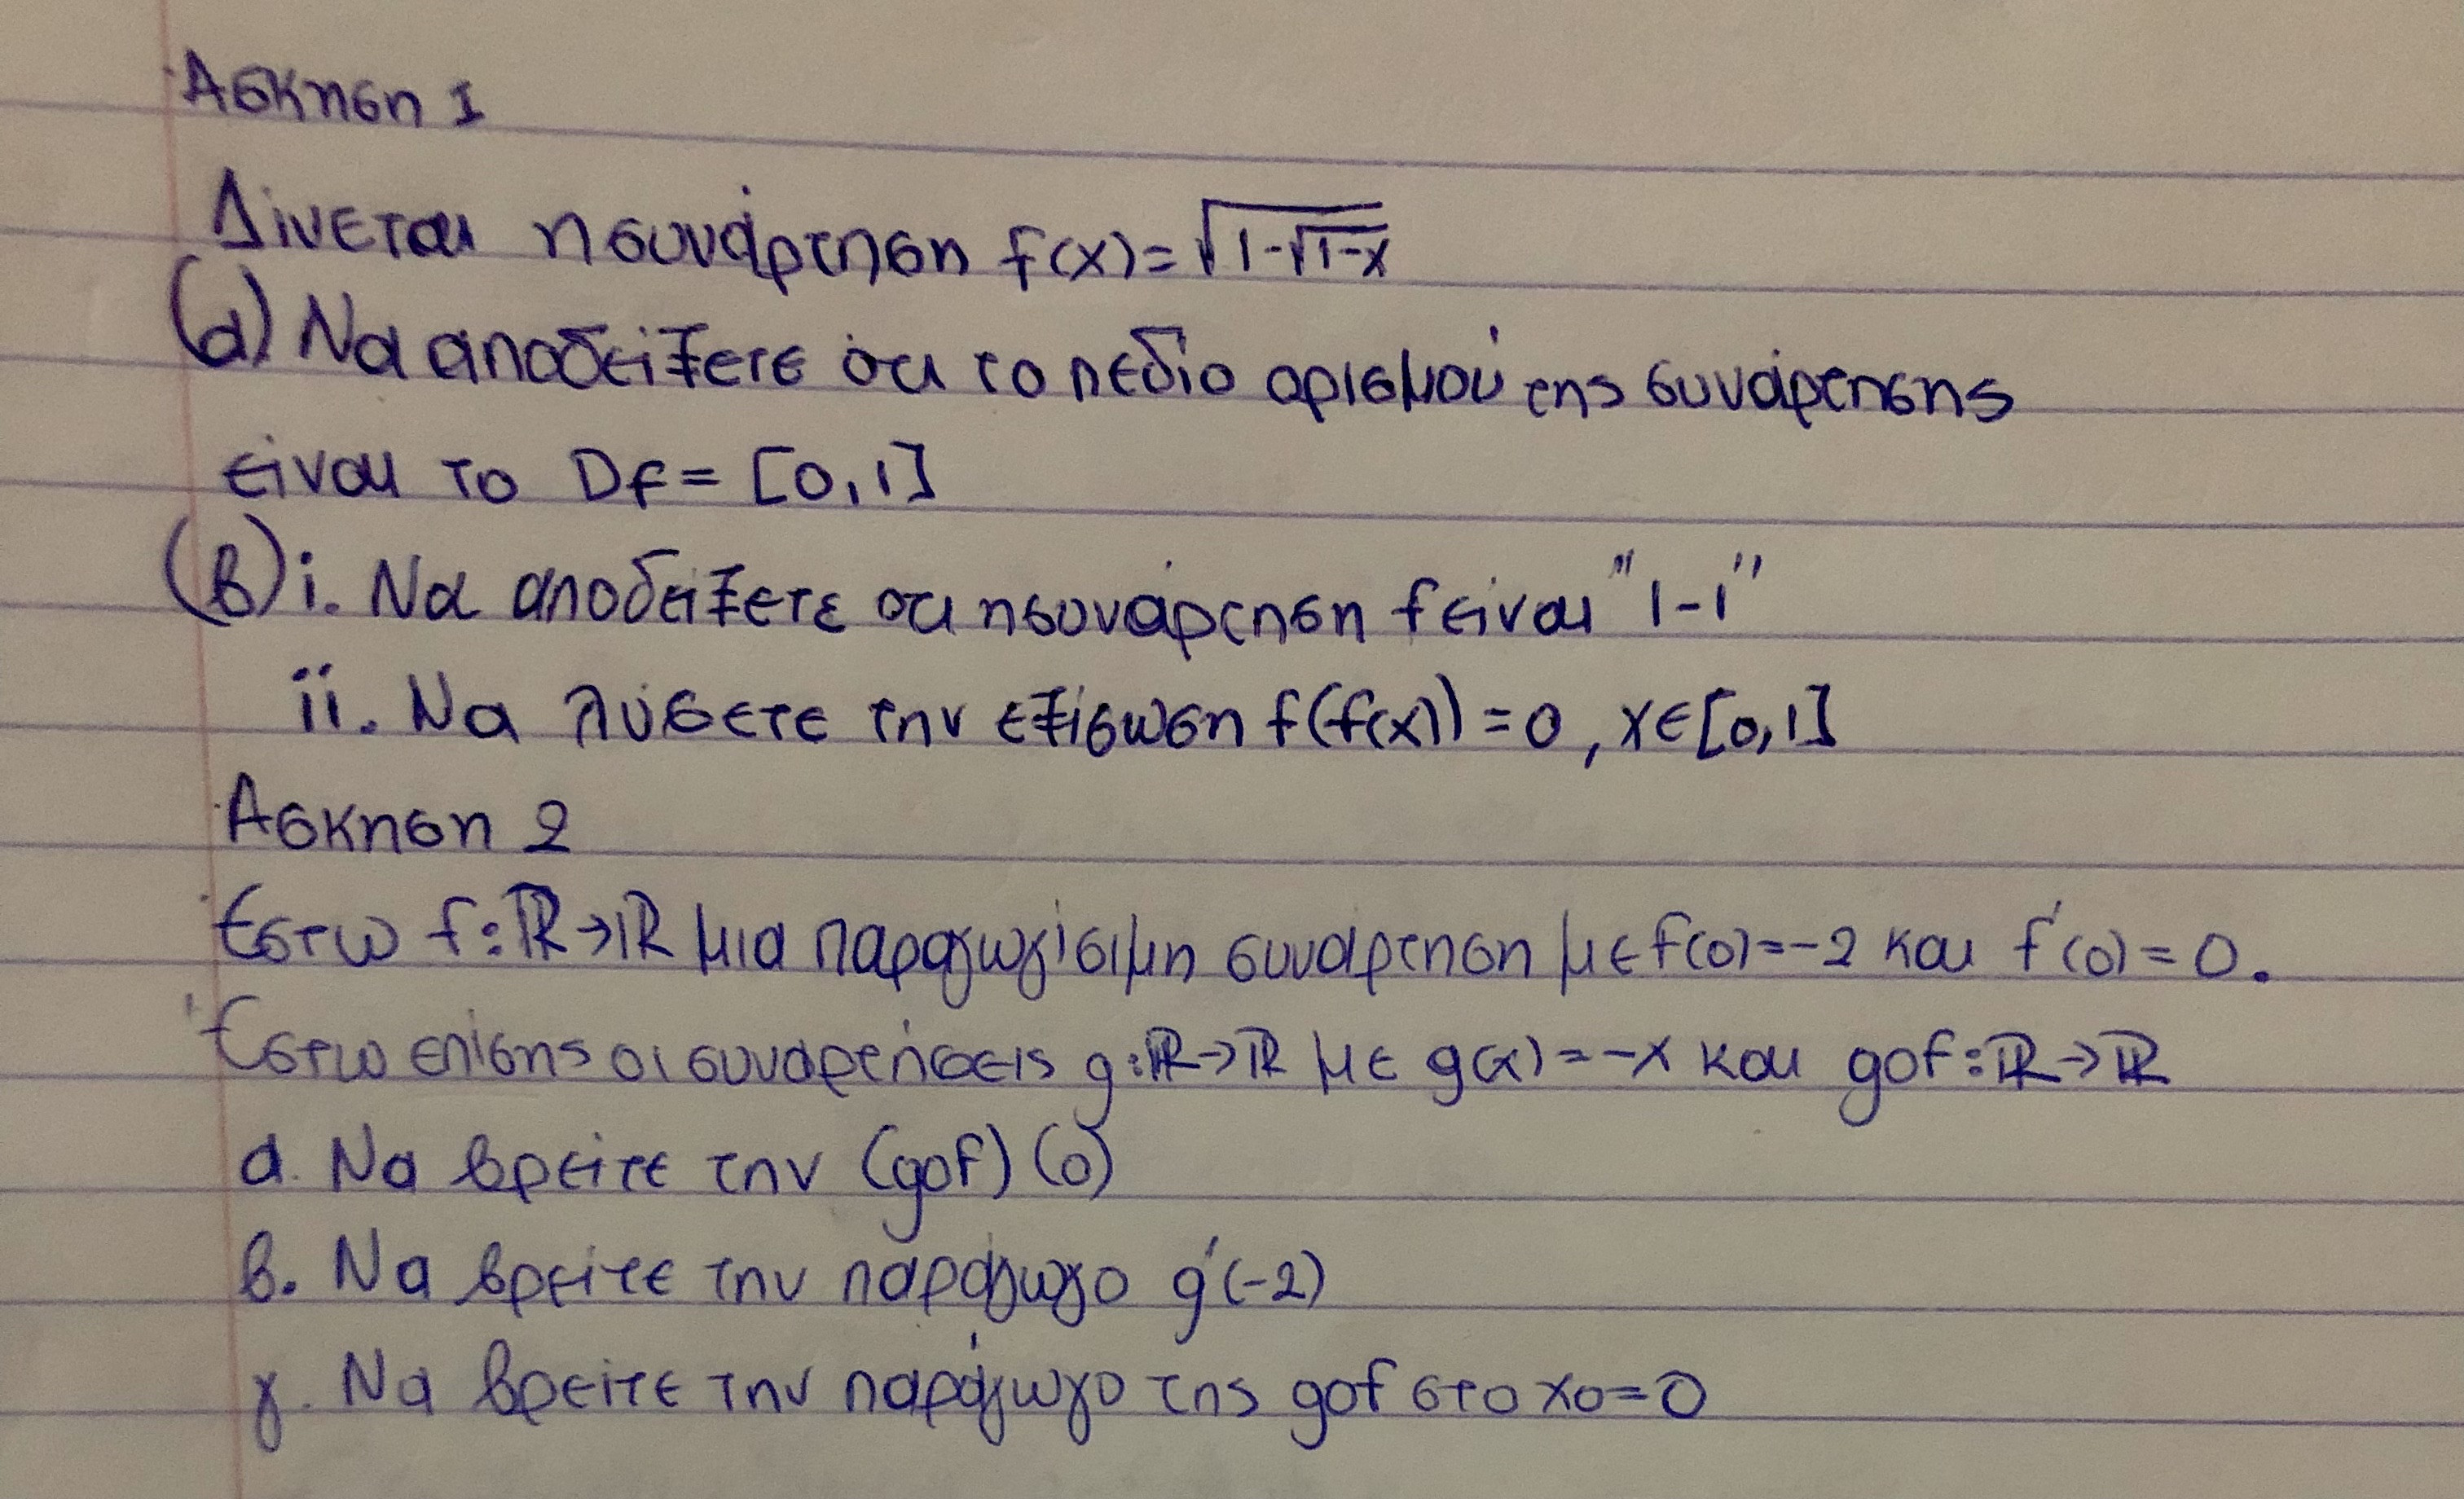 Άσκηση 1
Δίνεται η συνάρτηση f(x)=√(1-√(1-x))
(α) Να αποδείξετε ότι το πεδίο ορισμού της συνάρτησης
είναι το Df= [0,1]
(β) i. Να αποδείξετε ότι η συνάρτηση f είναι "1-1"
ii. Να λύσετε την εξίσωση f(f(x))=0, x∈[0,1]
Άσκηση 2
Έστω f:ℝ→ℝ μια παραγωγίσιμη συνάρτηση με f(0)=-2 και f'(0)=0.
Έστω επίσης οι συναρτήσεις g:ℝ→ℝ με g(x)=-x και gof:ℝ→ℝ
α. Να βρείτε την (gof)(0)
β. Να βρείτε την παράγωγο g'(-2)
γ. Να βρείτε την παράγωγο της gof στο x0=0